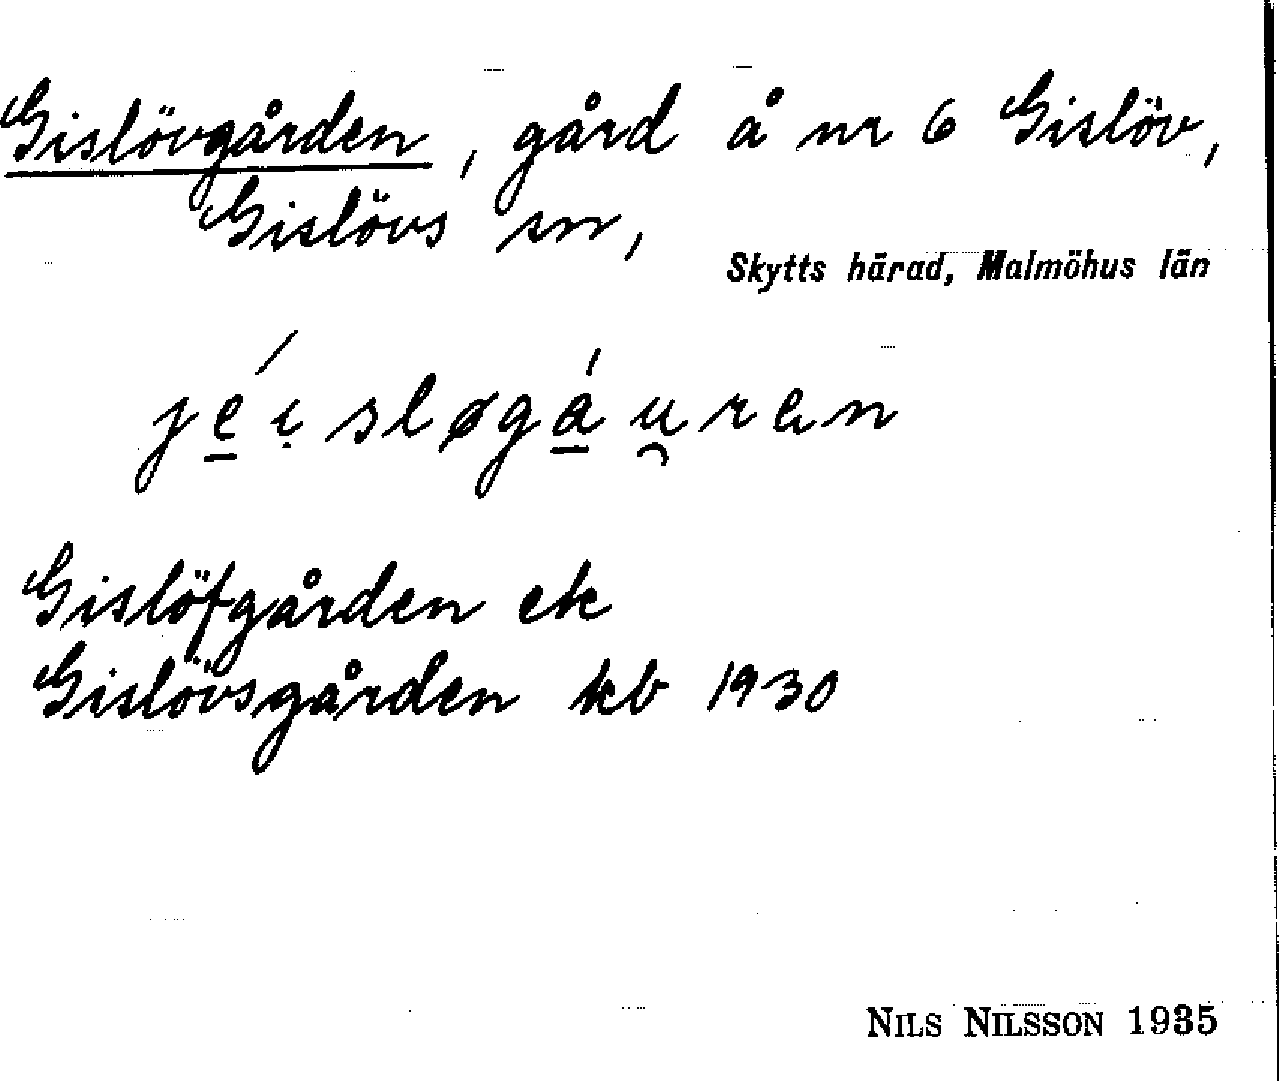 Gislövgården, gård å nr 6 Gislöv,
Gislövs sn,
Skytts härad, Malmöhus län
jéisløgáu̯ren
Gislöfgården ek
Gislövsgården kb 1930
NILS NILSSON 1935